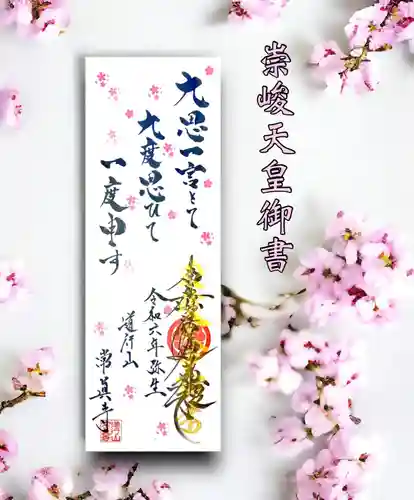 崇峻天皇御書
九思一言とて
九度思ひて
一度申す
令和六年弥生
道行山
常眞寺